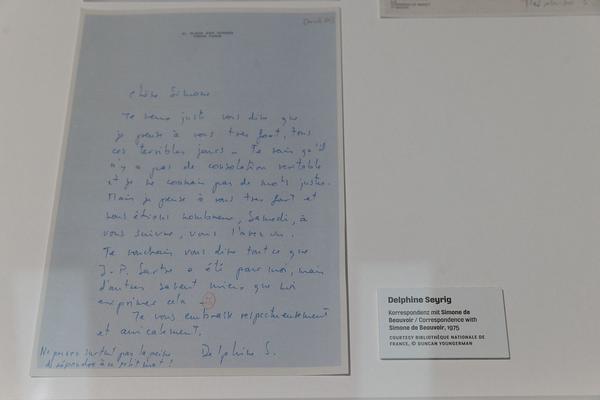 21, PLACE DES VOSGES
75004 PARIS
Chère Simone
Je veux juste vous dire que
je pense à vous très fort, tous
ces terribles jours - Je sais qu'il
n'y a pas de consolation veritable
et je ne connais pas de mots justes.
Mais je pense à vous très fort et
nous étions nombreux, Samedi, à
vous suivre, vous l'avez vu.
Je voudrais vous dire tout ce que
J. P. Sartre a été pour moi, mais
d'autres savent mieux que moi
exprimer cela -
Je vous embrasse respectueusement
et amicalement.
Delphine S.
Ne prenez surtout pas la peine
de répondre à ce petit mot !
Delphine Seyrig
Korrespondenz mit Simone de
Beauvoir / Correspondence with
Simone de Beauvoir, 1975
COURTESY BIBLIOTHÈQUE NATIONALE DE
FRANCE, © DUNCAN YOUNGERMAN